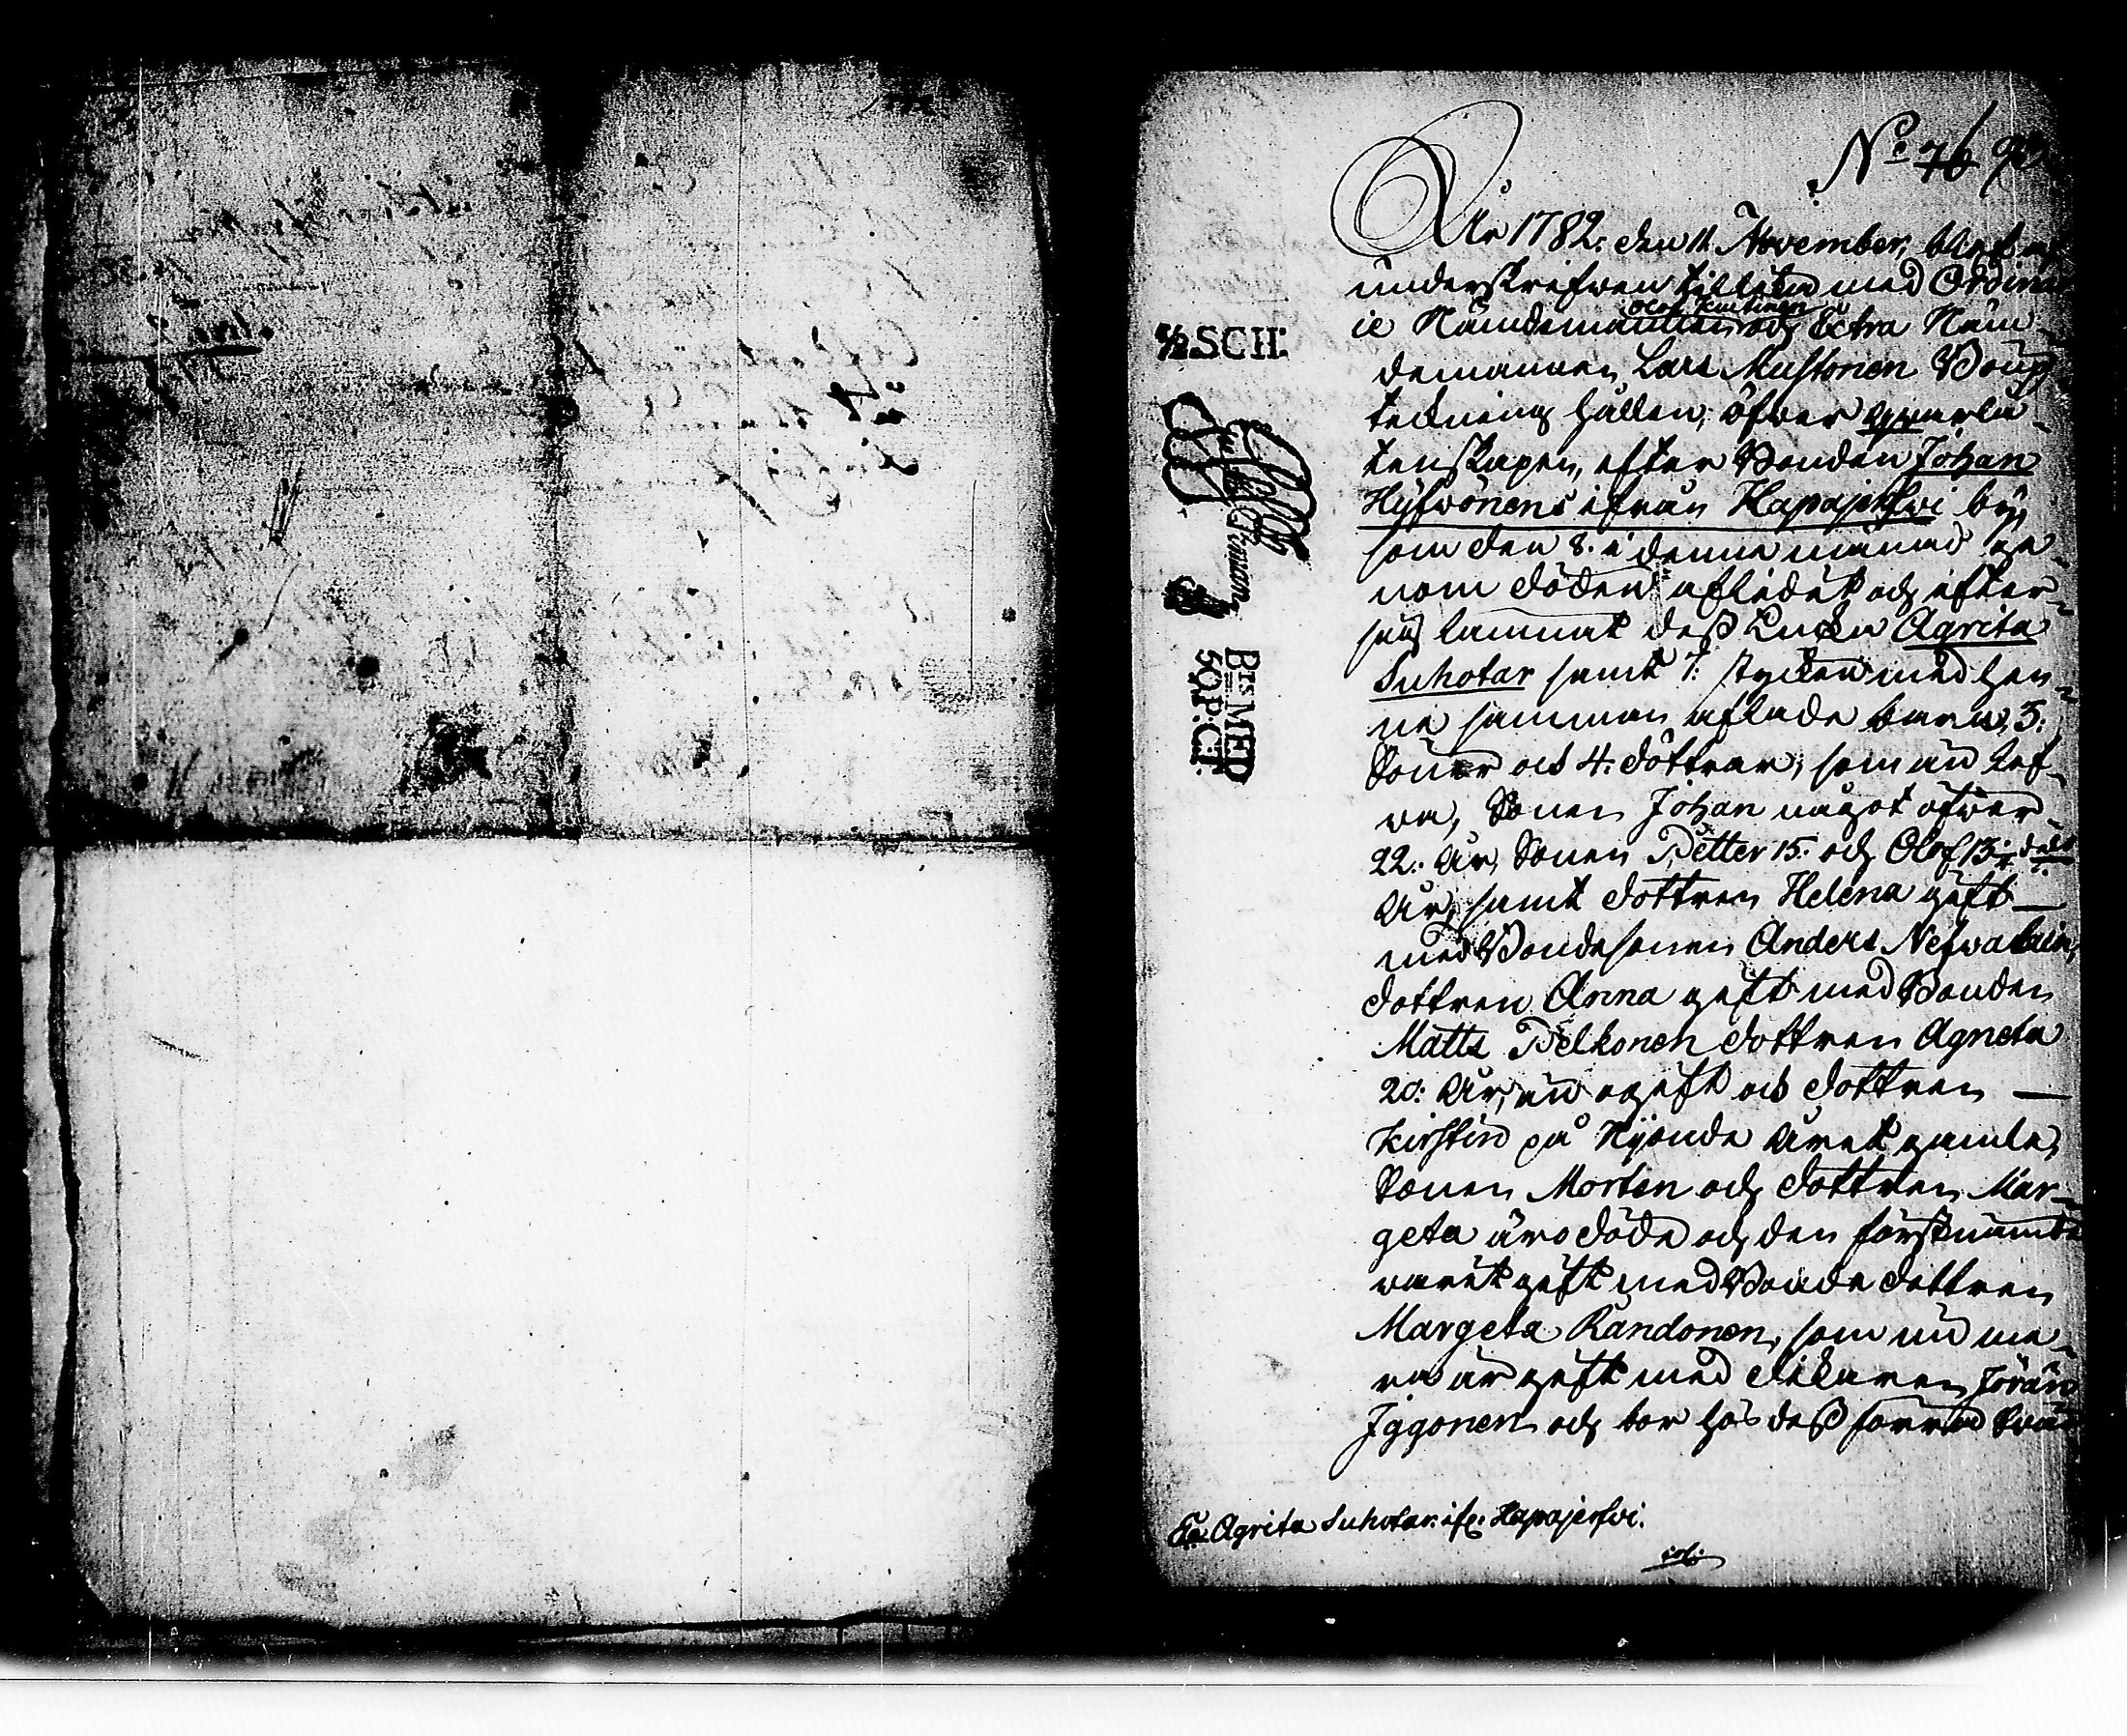 No 76
År 1782. den 11 November, blef af
underskrifwen tillika med Ordina
Olof Kutinen
ie Nämdemannen och Extra Näm-
demannen Lars Mustonen Boup
teckning hållen, öfwer qwarlå-
tenskapen, efter Bonden Johan
Hyfwönens ifrån Hapajerfwi by,
som den 8. i denne månad ge-
nom döden aflidet, och efter-
sig lämnat dess Enka Agrita
Suhotar samt 7. stycken med hen-
ne samman aflade barn, 3.
Söner och 4. döttrar, som än lef-
wa, Sonen Johan något öfwer
22. År, Sonen Petter 15. och Olof 13
År, samt dottren Helena gift
med Bondesonen Anders Nefwalain,
dottren Anna gift med Bonden
Matts Pelkonen dottren Agneta
20: År, än ogift och dottren
Kirstin på Nijonde Året gamla,
Sonen Morten och dottren Mar-
geta äro döda och den förstnämde
warit gift med Bonde dottren
Margeta Rändonen, som nu me-
ra är gift med Jöran
Jggonen och bor hos dess förra Swär
Ea. Agrita Suhotar. ifr. Hapajerfwi.
½ SCH:
BTS MED
50 P: CT: